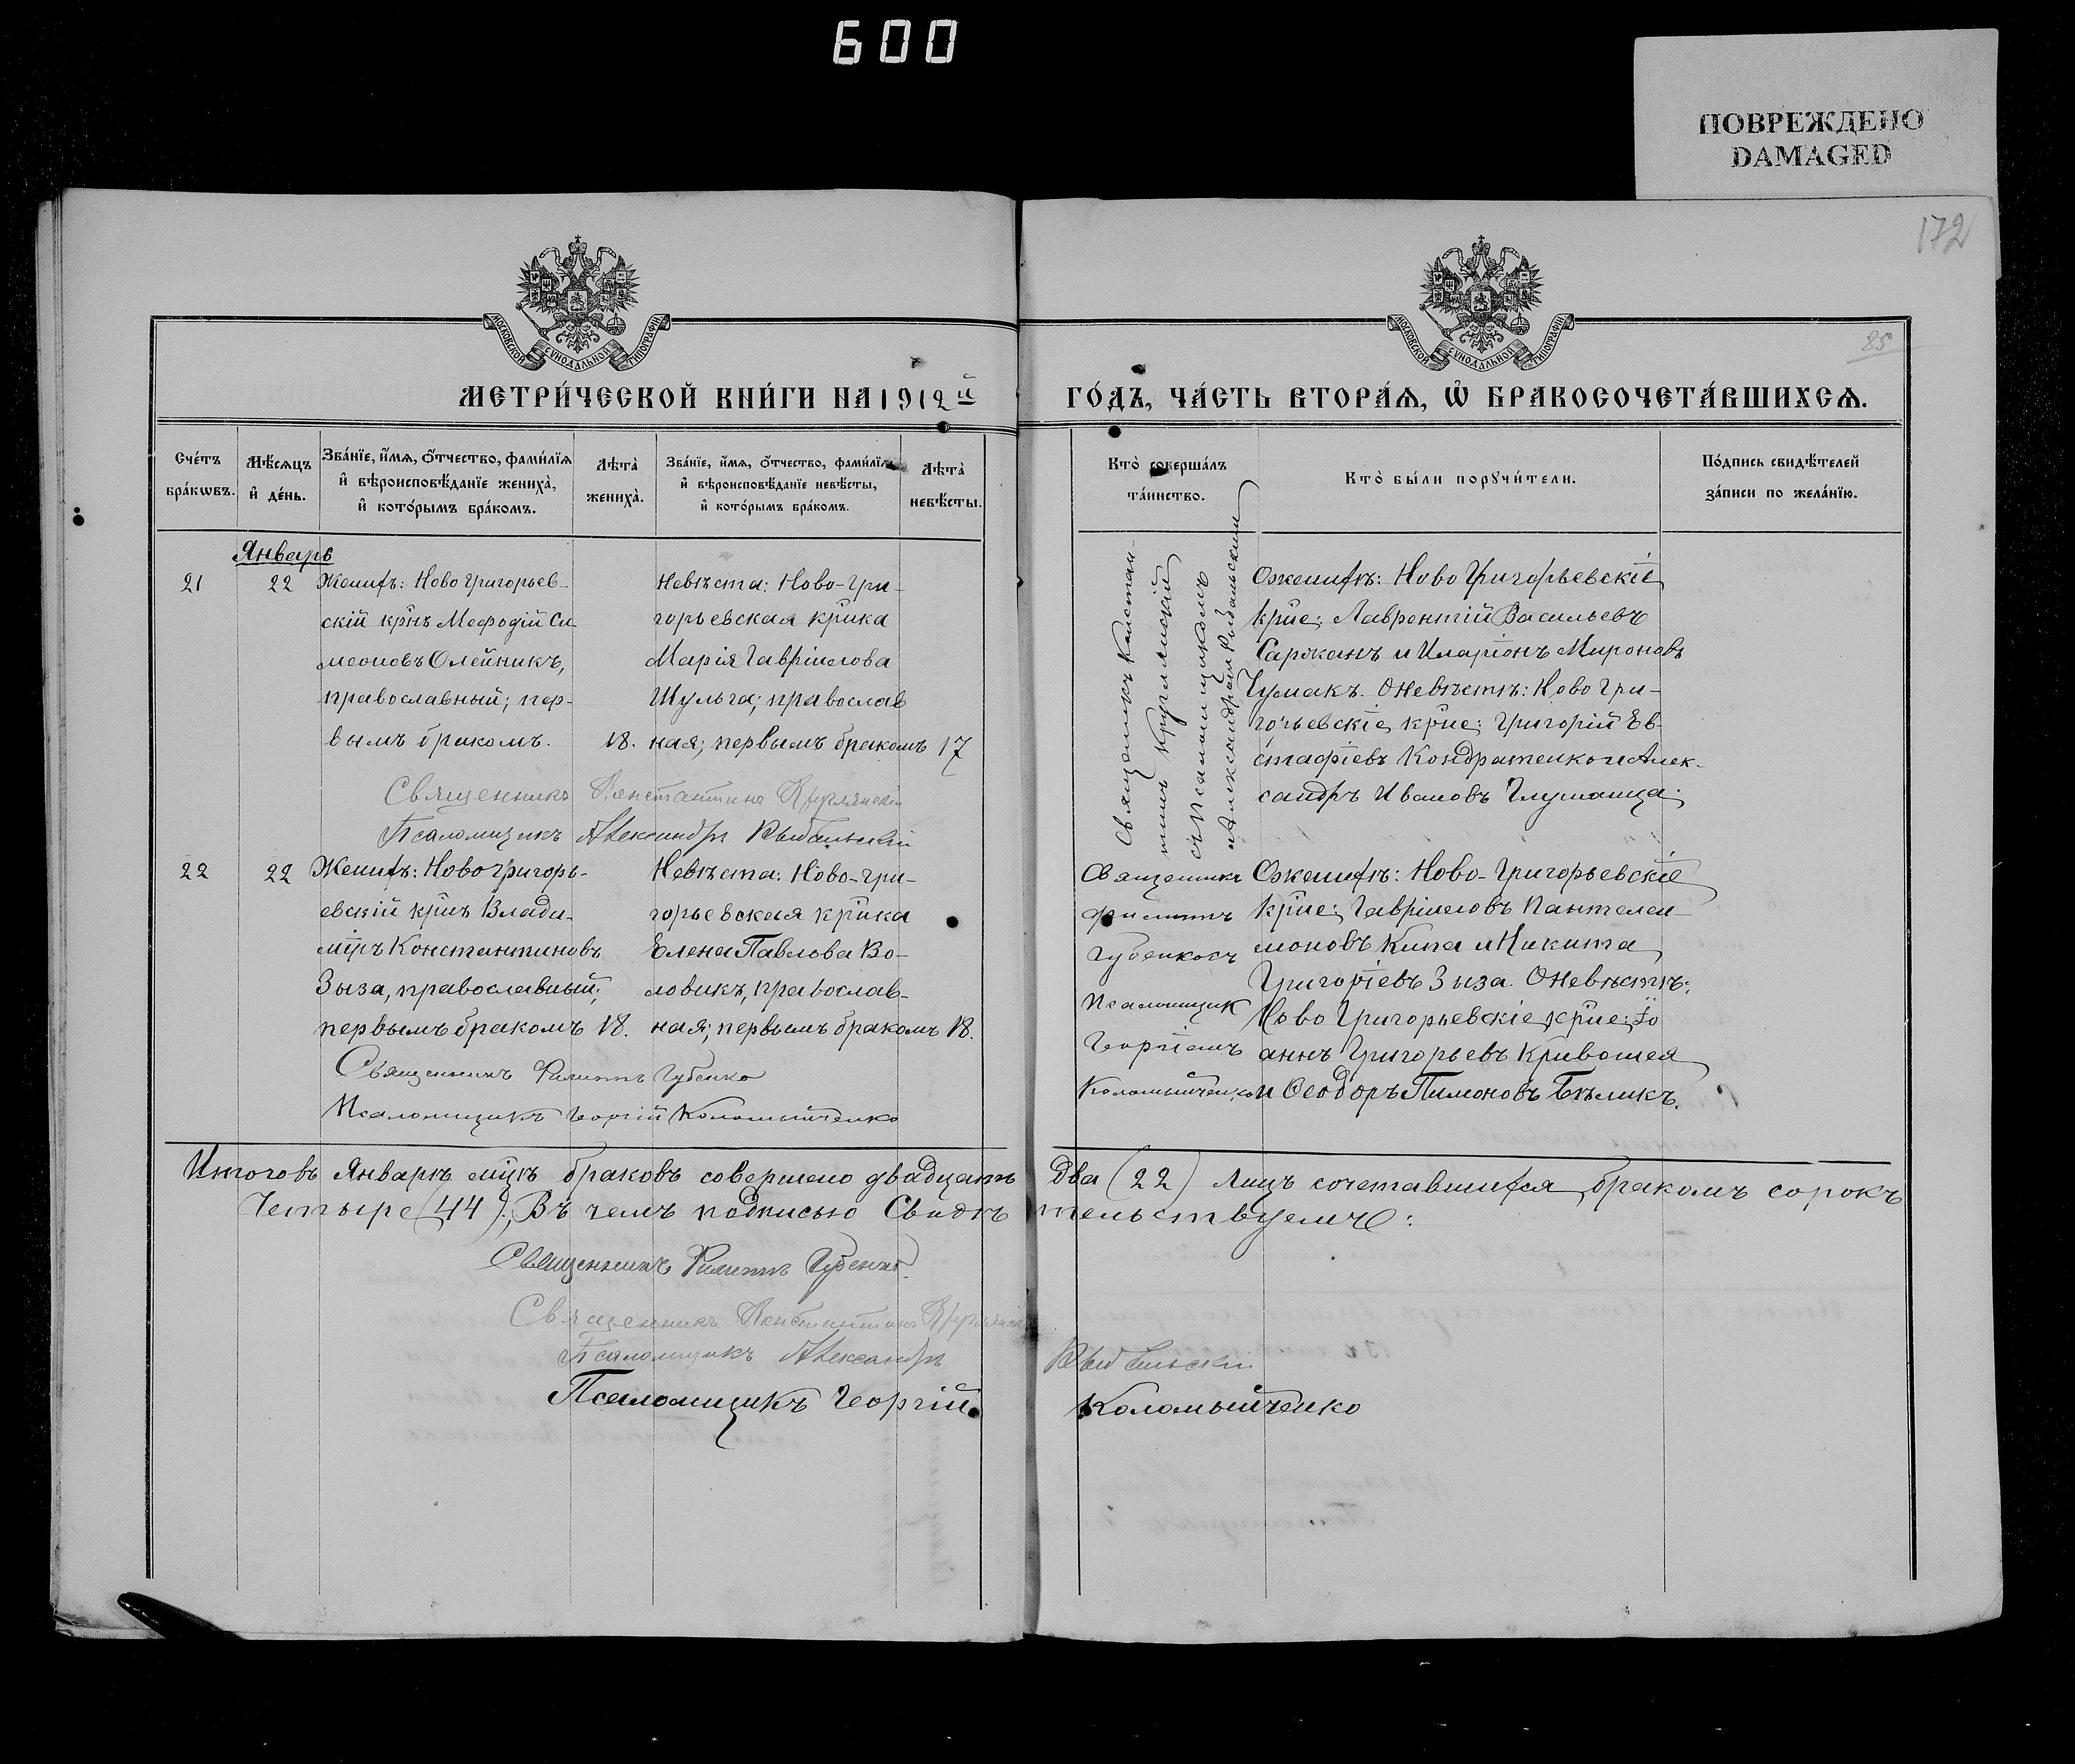 600
ПОВРЕЖДЕНО
DAMAGED
172
85
МОСКОВСКОЙ СѴНОДАЛЬНОЙ ТИПОГРАФІИ
МОСКОВСКОЙ СѴНОДАЛЬНОЙ ТИПОГРАФІИ
МЕТРИ́ЧЕСКОЙ КНИ́ГИ НА 1912 й
ГО́ДЪ, ЧА́СТЬ ВТОРА́Ѧ, Ѡ҆ БРАКОСОЧЕТА́ВШИХСѦ.
Сче́тъ бра́кѡвъ.
Мѣ́сѧцъ и҆ де́нь.
Зва́нїе, и҆́мѧ, ѻ҆́тчество, фами́лїѧ
и҆ вѣроисповѣ́данїе жениха̀,
и҆ кото́рымъ бра́комъ.
Лѣта̀ жениха̀.
Зва́нїе, и҆́мѧ, ѻ҆́тчество, фами́лїѧ
и҆ вѣроисповѣ́данїе невѣ́сты,
и҆ кото́рымъ бра́комъ.
Лѣта̀ невѣ́сты.
Кто̀ соверша́лъ та́инство.
Кто̀ бы́ли порꙋчи́тели.
По́дпись свидѣ́телей
за́писи по жела́нїю.
Январь
21
22
Женихъ: Ново Григорьев-
скій крнъ Мефодій Си-
меоновъ Олейникъ,
православный; пер-
вымъ бракомъ.
18.
Невѣста: Ново-Гри-
горьевская крпка
Марія Гавріилова
Шульга; православ
ная; первымъ бракомъ
17
Священникъ Константин-
тинъ Круглянскій
съ Псаломщикомъ
Александромъ Рыбальскимъ
О женихѣ: Ново Григорьевскіе
крне: Лаврентій Васильевъ
Саржанъ и Иларіонъ Мироновъ
Чумакъ. О невѣстѣ: Ново Гри-
горьевскіе крне: Григорій Ев-
стафіевъ Кондратенко и Алек-
сандръ Ивановъ Глушаица.
Священникъ Константинъ Круглянскій
Псаломщикъ Александръ Рыбальскій
22
22
Женихъ: Ново Григорь-
евскій крнъ Влади-
міръ Константиновъ
Зыза, православный;
первымъ бракомъ
18.
Невѣста: Ново-Гри-
горьевская крпка
Елена Павлова Во-
ловикъ, православ-
ная; первымъ бракомъ
18.
Священникъ
Филиппъ
Губенко съ
Псаломщик
Георгіемъ
Коломыйченко
О женихѣ: Ново-Григорьевскіе
крне: Гавріиловъ Пантелеи-
моновъ Кипа и Никита
Григоріевъ Зыза. О невѣстѣ:
Ново Григорьевскіе крне: Іо
аннъ Григорьевъ Кривошея
и Ѳеодоръ Пимоновъ Бѣликъ.
Священникъ Филиппъ Губенко
Псаломщикъ Георгій Коломыйченко
Итого въ Январѣ мцѣ браковъ совершено двадцать два (22) лицъ сочетавшихся бракомъ сорокъ
Четыре (44). Въ чемъ подписью Свидѣтельствуемъ:
Священникъ Филиппъ Губенко.
Священникъ Константинъ Круглянскій
Псаломщикъ Александръ Рыбальскій
Псаломщикъ Георгій Коломыйченко